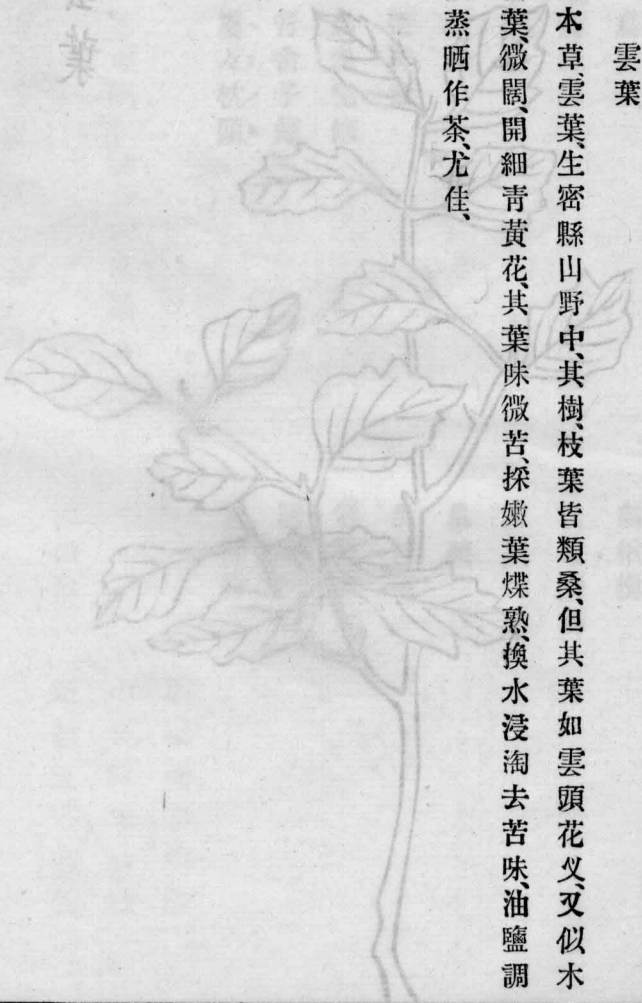 雲葉
本草、雲葉、生密縣山野中、其樹、枝葉皆類桑、但其葉如雲頭花乂、又似木
葉、微闊、開細青黃花、其葉味微苦、採嫩葉煠熟、換水浸淘去苦味、油鹽調
蒸晒作茶、尤佳、